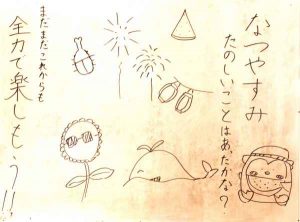 なつやすみ
たのしいことはあったかな？
まだまだこれからも
全力で楽しもう！！